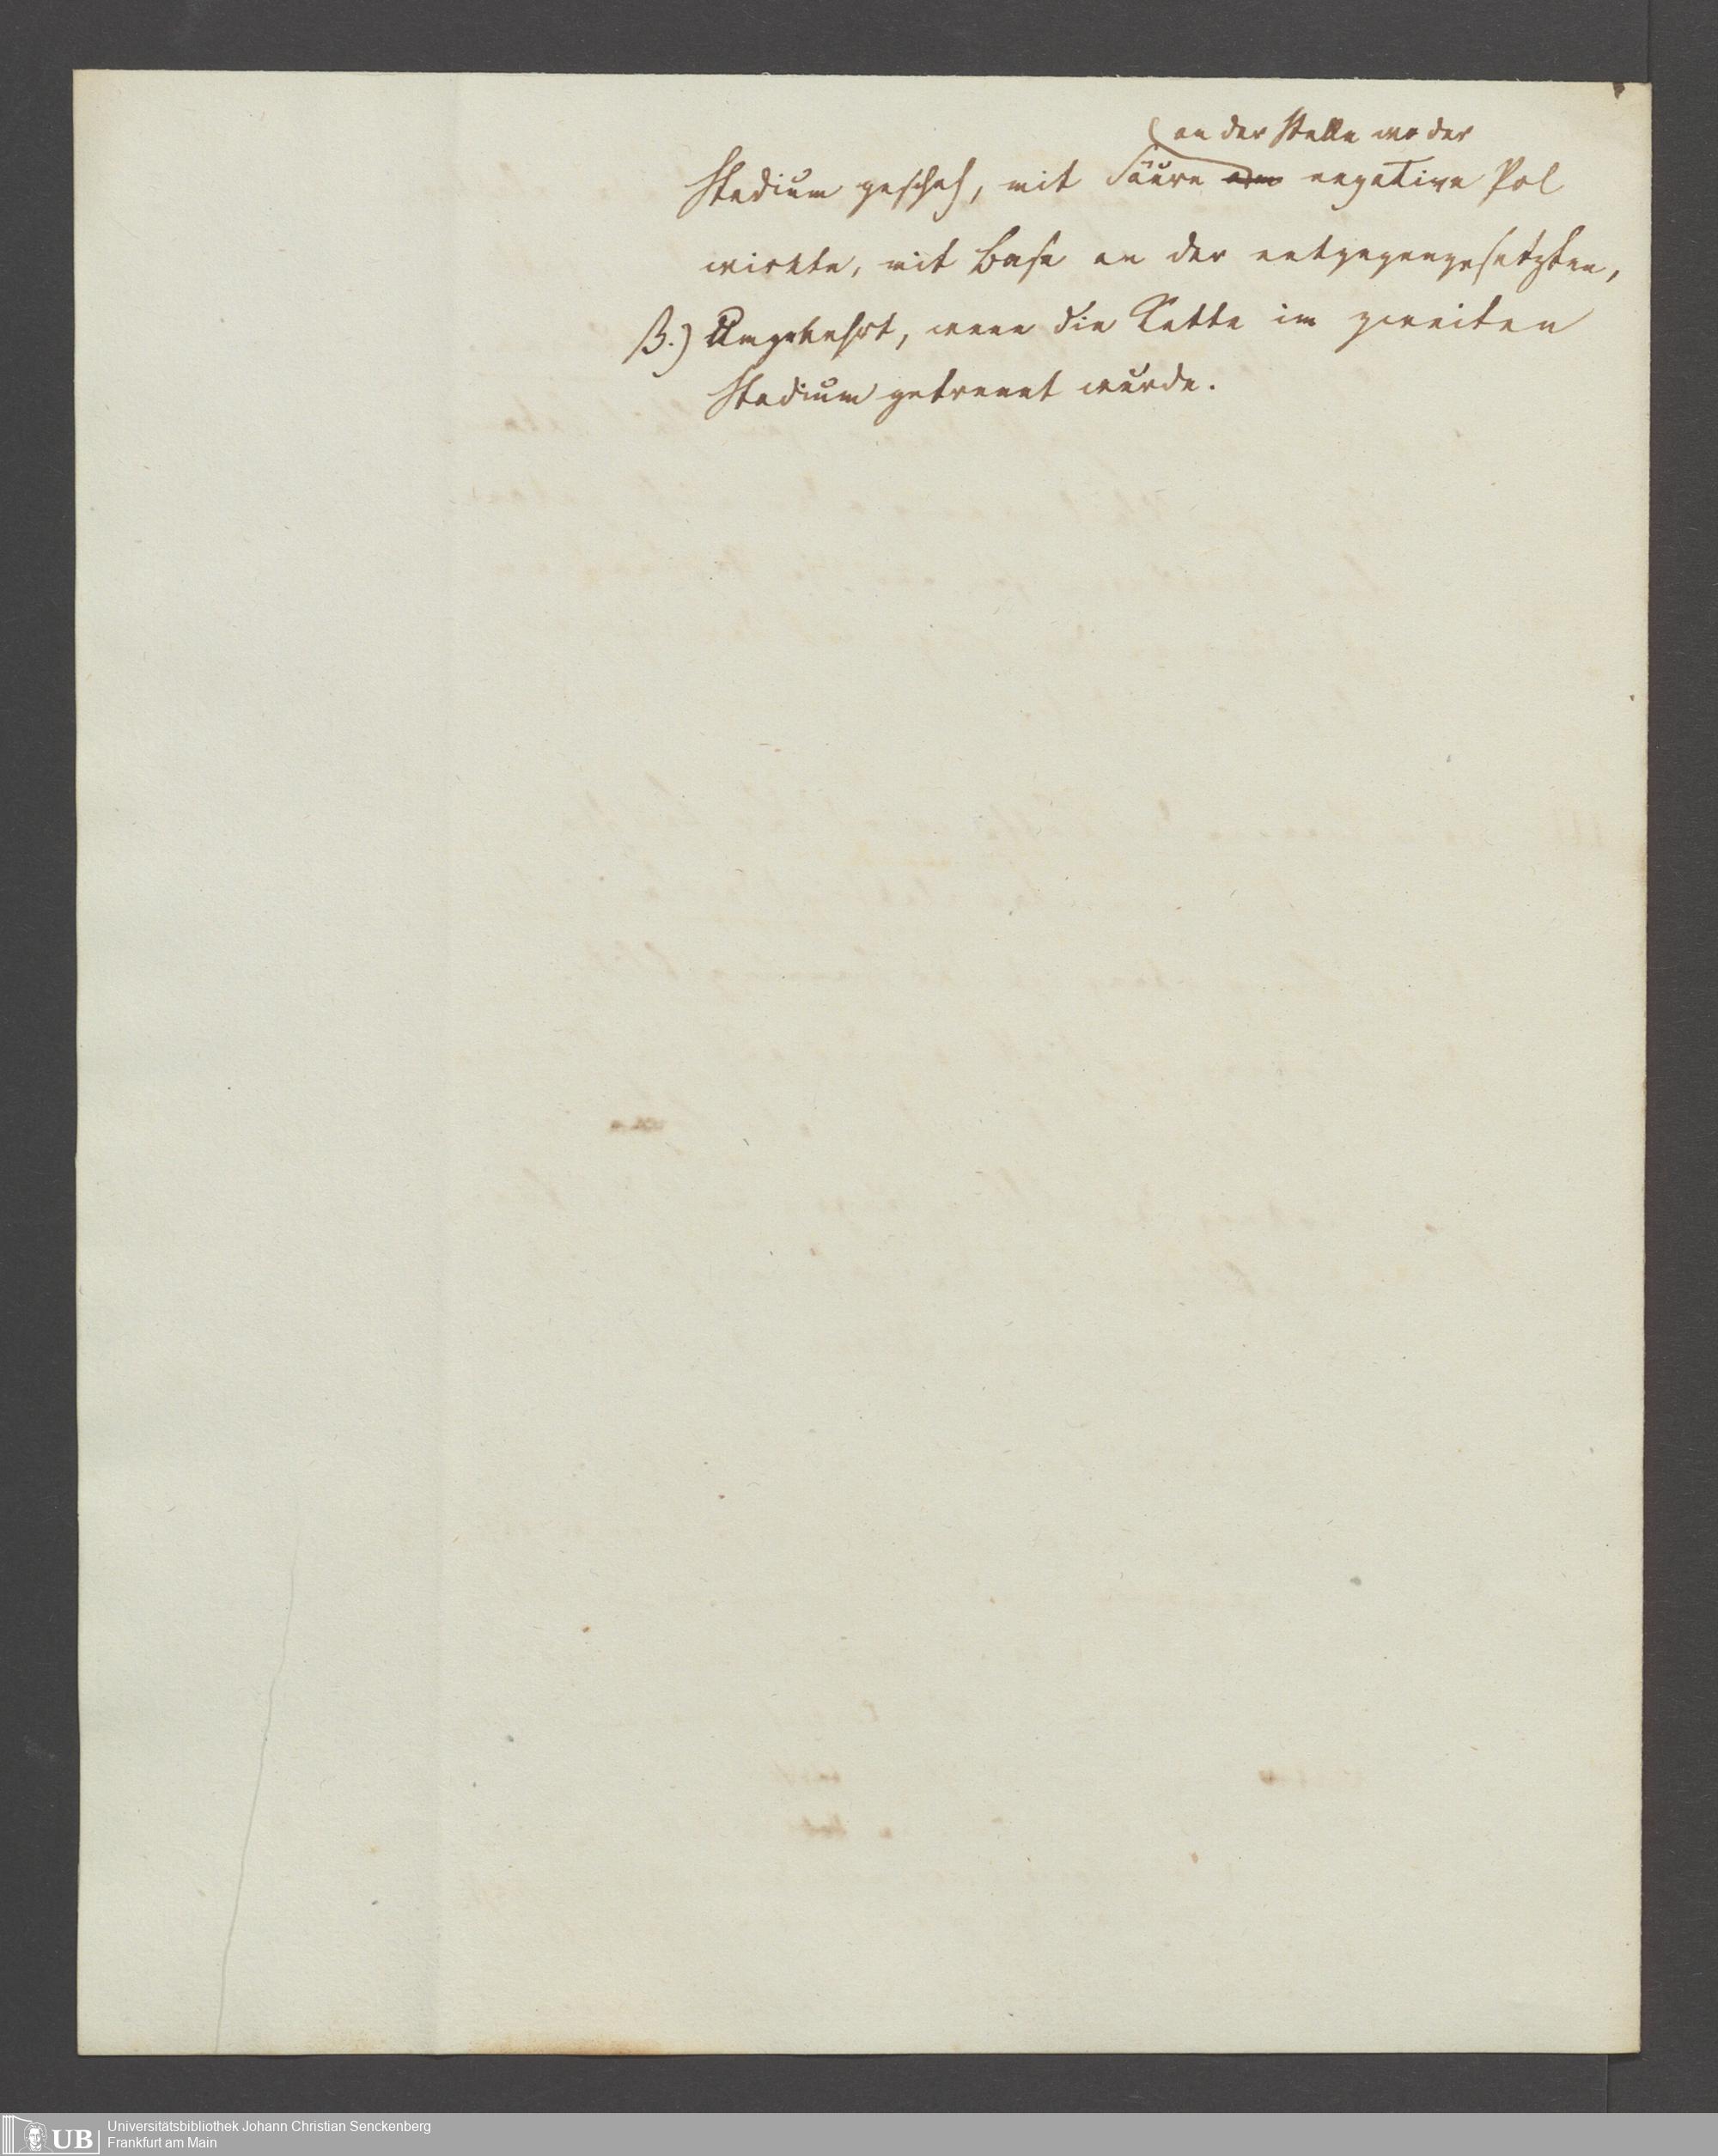 an der Stelle wo der
Stadium geschah, mit Säure am negative Pol
wirkte, mit Base an der entgegengesetzten,
β.) Umgekehrt, wenn die Kette im zweiten
Stadium getrennt wurde.
UB Universitätsbibliothek Johann Christian Senckenberg
Frankfurt am Main